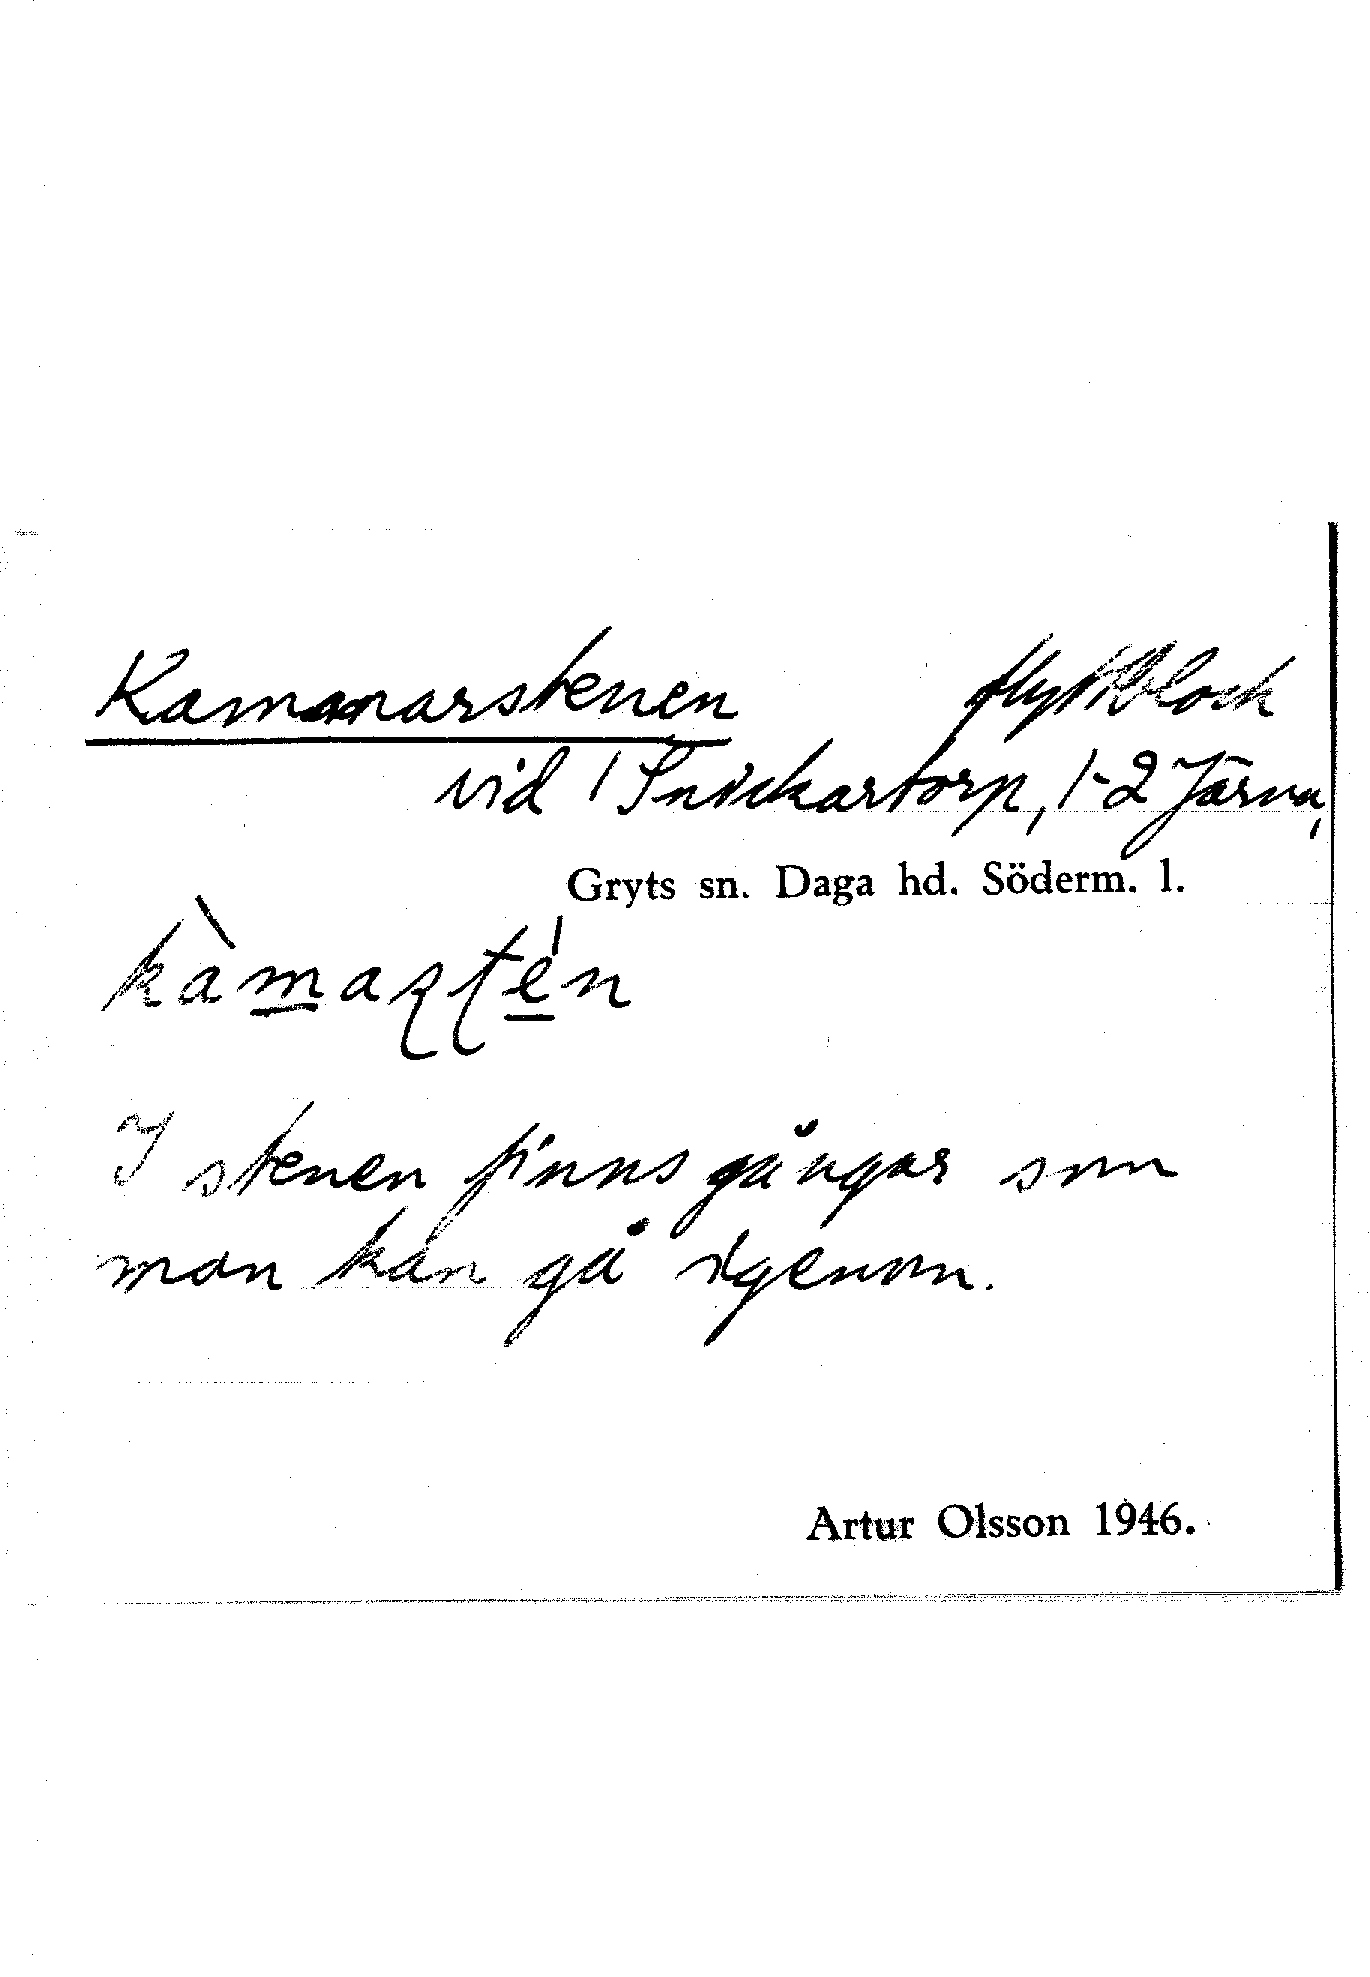 Kammarstenen flyttblock
vid 1 Snickartorp, 1-2 Järna,
Gryts sn. Daga hd. Söderm. l.
I stenen finns gångar som
man kan gå igenom.
Artur Olsson 1946.